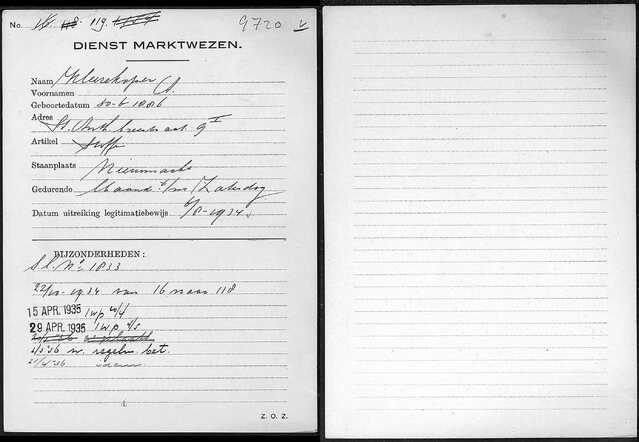 No. 16. 118. 119. 9720 V
DIENST MARKTWEZEN.
Naam Kleerekoper
Voornamen
Geboortedatum 30-6-1886
Adres St. Anth. breestraat 9 I
Artikel Stoffen
Staanplaats Nieuwmarkt
Gedurende Maand. t/m Zaterdag
Datum uitreiking legitimatiebewijs 6/8-1934
BIJZONDERHEDEN:
S.L. No. 1833
22/10-1934 van 16 naar 118
15 APR. 1935 1wp
29 APR. 1935 1wp
w. regelm. bet.
idem
Z. O. Z.